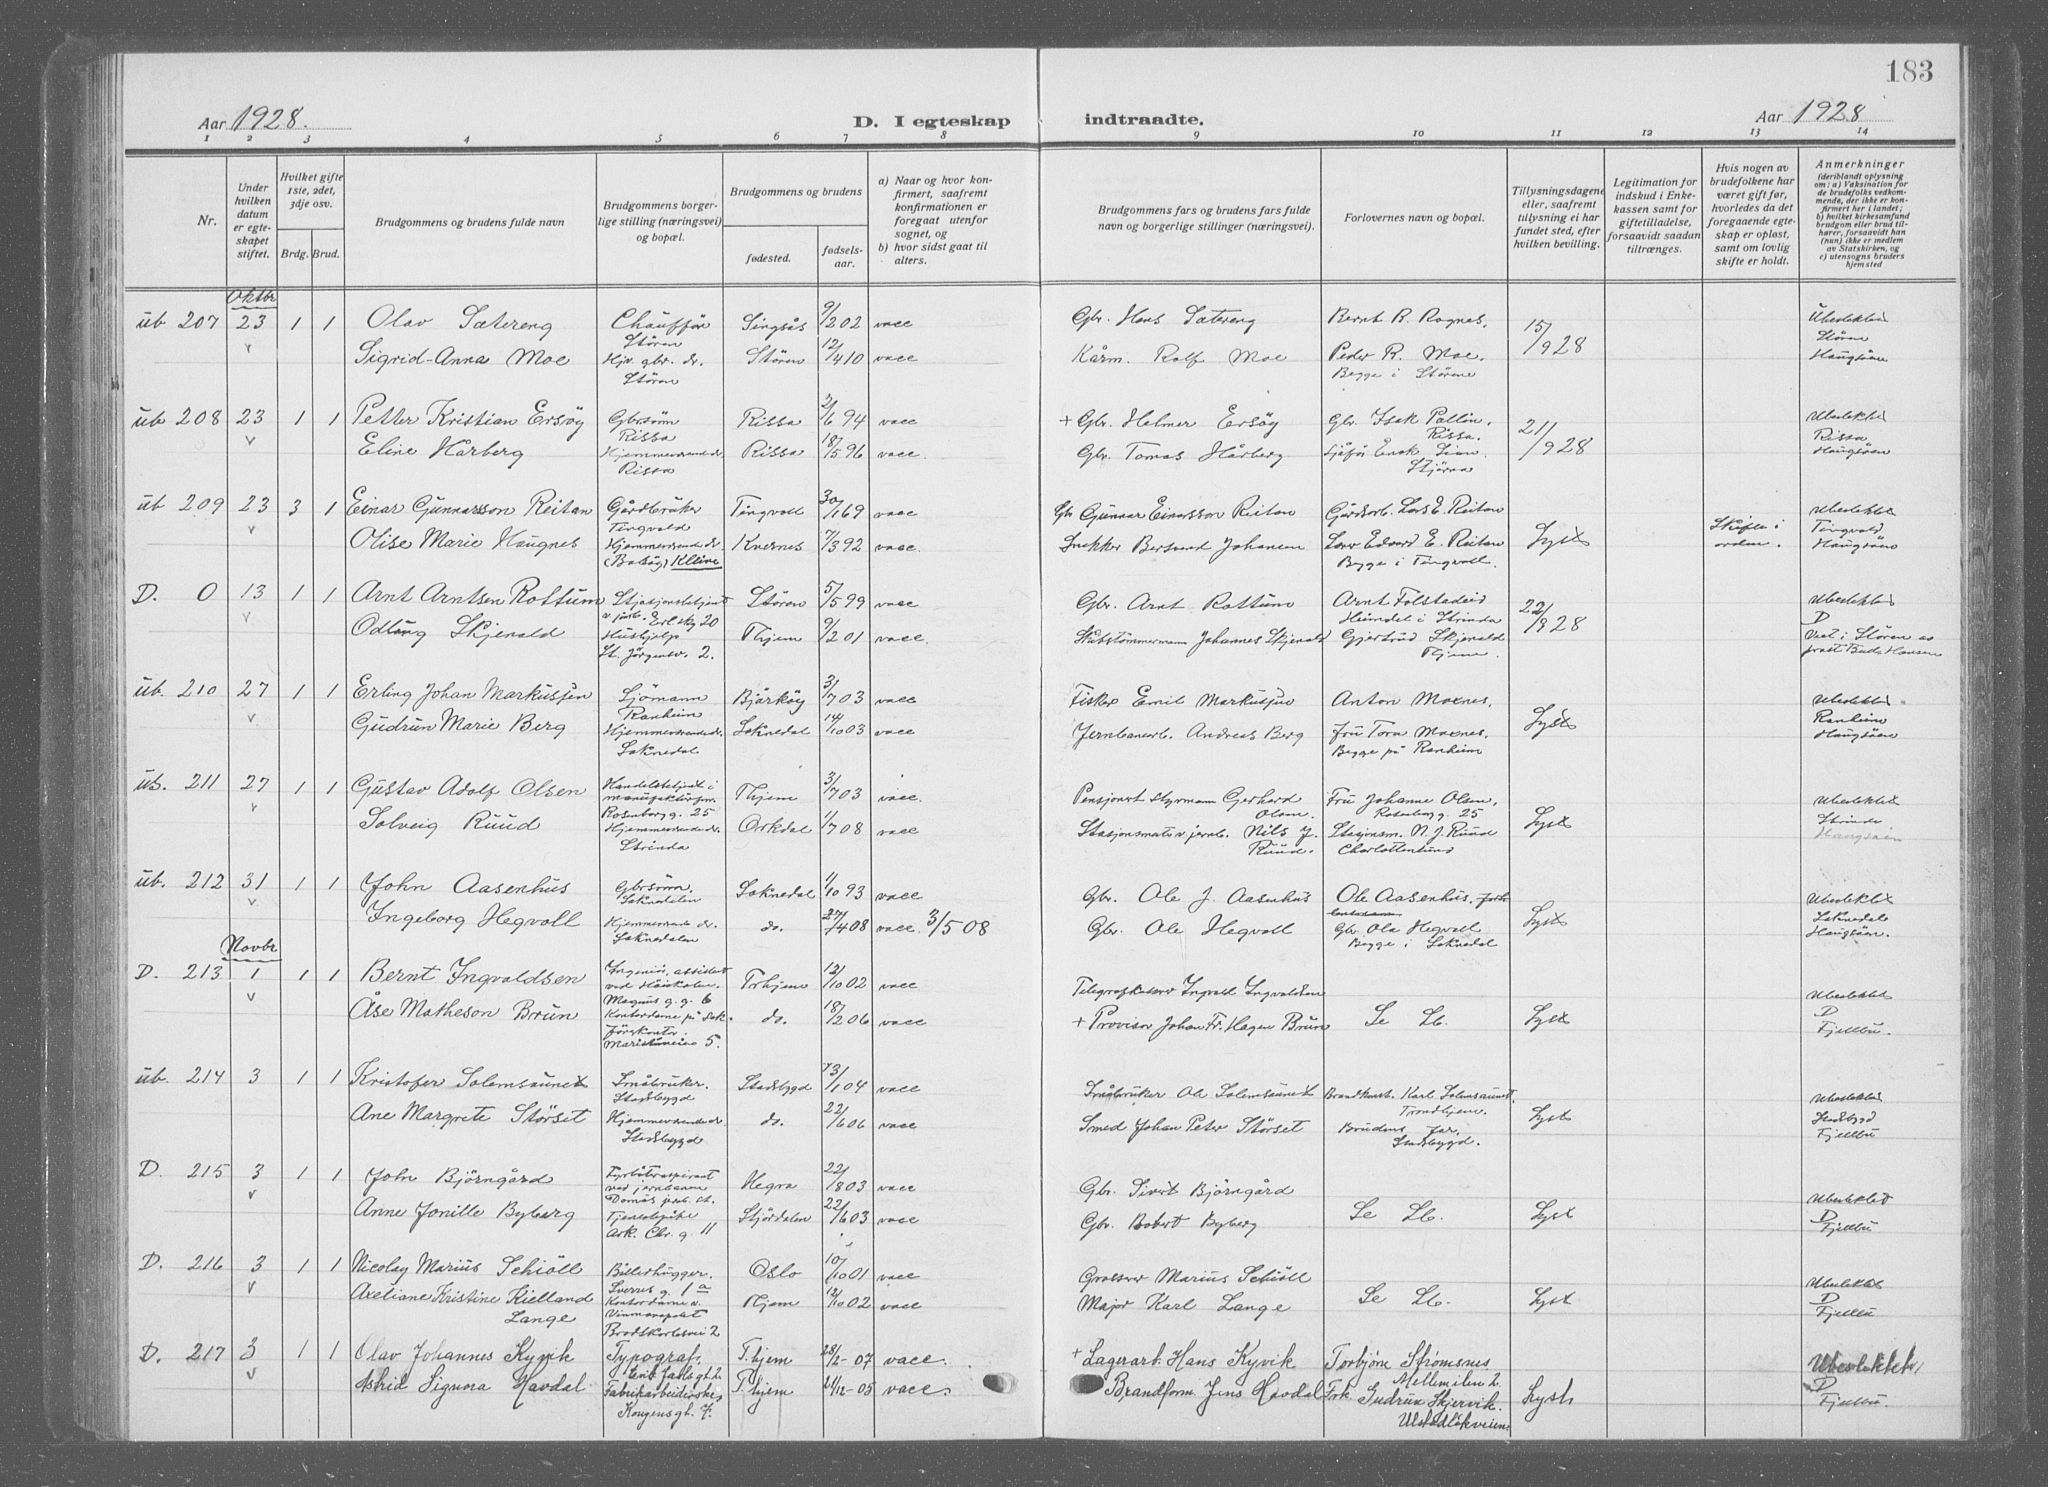 183
Aar 1928.
D. I egteskap
indtraadte.
Aar 1928
1 2 3 4 5 6 7 8
9 10 11 12 13 14
Nr.
Under hvilken datum er egteskapet stiftet.
Hvilket gifte 1ste, 2det, 3dje osv.
Brdg. Brud.
Brudgommens og brudens fulde navn
Brudgommens borgerlige stilling (næringsvei) og bopæl.
Brudgommens og brudens
fødested.
fødselsaar.
a) Naar og hvor konfirmert, saafremt konfirmationen er foregaat utenfor sognet, og
b) hvor sidst gaat til alters.
Brudgommens fars og brudens fars fulde navn og borgerlige stillinger (næringsvei).
Forlovernes navn og bopæl.
Tillysningsdagene eller, saafremt tillysning ei har fundet sted, efter hvilken bevilling.
Legitimation for indskud i Enkekassen samt for giftetilladelse, forsaavidt saadan tiltrænges.
Hvis nogen av brudefolkene har været gift før, hvorledes da det foregaaende egteskap er opløst, samt om lovlig skifte er holdt.
Anmerkninger
(deriblandt oplysning om: a) Vaksination for de brudefolks vedkommende, der ikke er konfirmert her i landet; b) hvilket kirkesamfund brudgom eller brud tilhører, forsaavidt han (hun) ikke er medlem av Statskirken, og c) utensogns bruders hjemsted
Oktbr
ub 207 23 1 1 Olav Sætereng Chauffør Støren Singsås 9/2 02 vacc Gbr. Hans Sætereng Bernt R. Rognes, 15/9 28 Ubeslektet
Sigrid-Anna Moe Hjv. gbr. dr. Støren Støren 12/4 10 vacc Kårm. Rolf Moe Peder R. Moe. Begge i Støren Støren Haugsåen
ub 208 23 1 1 Petter Kristian Ersøy Gbrsønn Rissa Rissa 2/6 94 vacc + Gbr. Helmer Ersøy Gbr. Isak Pallin, Rissa. 21/9 28 Ubeslektet
Eline Hårberg Hjemmeværende dr. Rissa Rissa 18/5 96 vacc. Gbr. Tomas Hårberg Stjørna Rissa Haugsåen
ub 209 23 3 1 Einar Gunnarsson Reitan Gårdbruker Tingvold Tingvoll 30/1 69 vacc Gbr Gunnar Einarsson Reitan Gårdsarb. Lars E. Reitan Lyst Skifte i orden. Ubeslektet
Olise Marie Haugnes Hjemmeværende dr (Batsøy) Kleive Kvernes 7/3 92 vacc. Snekker Bersvend Johansen Edvard E. Reitan Begge i Tingvoll. Tingvold Haugsåen
D. 0 13 1 1 Arnt Arntsen Rottum Stasjonsbetjent v jernb. Erl. sk g 20 Støren 5/5 99 vacc Gbr. Arnt Rottum Arnt Folstadeid Heimdal i Strinda 22/9 28 Ubeslektet D
Odlaug Skjevald Hushjelp St. Jørgensv. 2. Thjem 9/2 01 vacc. Skibstømmermann Johannes Skjevald Gjertrud Skjevald Thjem. Viet i Støren av prost Buds Hansen
ub. 210 27 1 1 Erling Johan Markussen Sjømann Ranheim Bjarkøy 3/7 03 vacc Fisker Emil Markussen Anton Moxnes, Lyst Ubeslektet
Gudrun Marie Berg Hjemmeværende dr. Soknedal Soknedal 14/10 03 vacc Jernbanearb. Andreas Berg Fru Tora Moxnes, Begge på Ranheim Ranheim Haugsåen
ub. 211 27 1 1 Gustav Adolf Olsen Handelsbetjent i manufakturfor. Rosenborg g. 25 Thjem 3/7 03 vacc. Pensjonert styrmann Gerhard Olsen Fru Johanne Olsen, Rosenborg g. 25 Lyst Ubeslektet
Solveig Ruud Hjemmeværende dr. Strinda Orkdal 1/7 08 vacc Stasjonsmester v jernb. Nils J. Ruud. Stasjonsm. N. J. Ruud Charlottenlund Strinda Haugsåen
ub. 212 31 1 1 John Aasenhus Gbrsønn. Soknedalen Soknedal 1/10 93 vacc Gbr. Ole J. Aasenhus Ole Aasenhus, Lyst Ubeslektet
Ingeborg Hegvoll Hjemmeværende dr. Soknedalen do. 27/4 08 vacc 3/5 08 Gbr. Ole Hegvoll Gbr Ola Hegvoll Begge i Soknedal Soknedalen Haugsåen.
Novbr
D. 213 1 1 1 Bernt Ingvaldsen Ingeniør, assistent ved Høiskolen. Magnus g. g. 6 Trhjem 12/10 02 vacc Telegrafkasser Ingvald Ingvaldsen Ubeslektet
Åse Matheson Brun Kontordame på Sakførerkontor. Maristuveien 5. do. 18/2 06 vacc + Provisor Johan Fr. Hagen Brun Se Lb. Lyst D Fjellbu.
ub. 214 3 1 1 Kristofer Solemsaunet Småbruker. Stadsbygd Stadsbygd 23/1 04 vacc Småbruker Ole Solemsaunet Brandkonst. Karl Solemsaunet, Trondhjem. Lyst Ubeslektet
Ane Margrete Størset Hjemmeværende dr Stadsbygd do. 22/6 06 vacc Smed Johan Peter Størset Brudens far, Stadsbygd. Stadsbygd Fjellbu
D. 215 3 1 1 John Bjørngård Fyrbøteraspirant ved jernbanen Domås jernb. st. Hegra 22/8 03 vacc Gbr. Sivert Bjørngård Ubeslektet
Anne Jonille Byberg Tjenestepike Ark. Chr. g. 11 Stjørdalen 22/6 03 vacc Gbr. Robert Byberg Se Lb. Lyst D Fjellbu
D. 216 3 1 1 Nicolay Marius Schiøll Billedhugger. Sverres g. 1a Oslo 10/10 01 vacc Gravør Marius Schiøll Ubeslektet
Axeliane Kristine Kielland Lange Kontordame v. Vinmonopolet Brodskorbsvei 2 Thjem 12/10 02 vacc Major Karl Lange Se Lb. Lyst D Fjellbu
D. 217 3 1 1 Olav Johannes Kyvik Typograf, Erik Jarls gt. 2 T.hjem 28/2-07 vacc. + Lagerarb. Hans Kyvik Torbjørn Strømsnes Mellemilen 2. Ubeslektet
Astrid Signna Havdal Fabrikarbeiderske Kongens gt. 7. T.hjem 21/12-05 vacc. Brandform. Jens Havdal Frk. Gudrun Skjervik. Ulstadløkveien Lyst D Fjellbu.